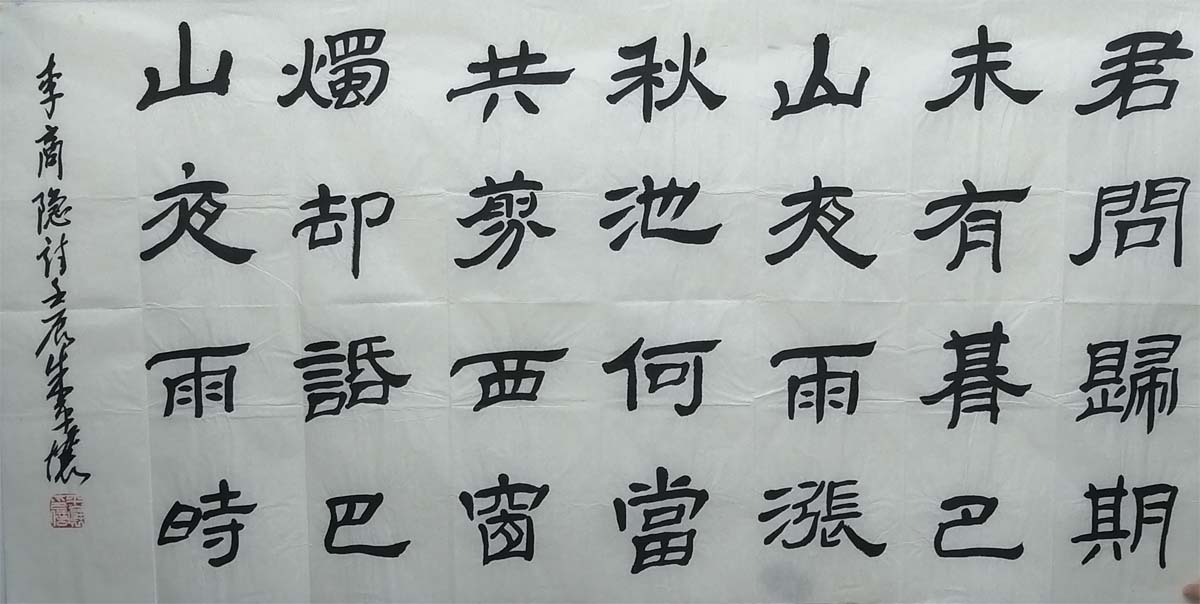 君問歸期
未有朞巴
山夜雨漲
秋池何當
共剪西窗
燭却話巴
山夜雨時
李商隐诗壬辰